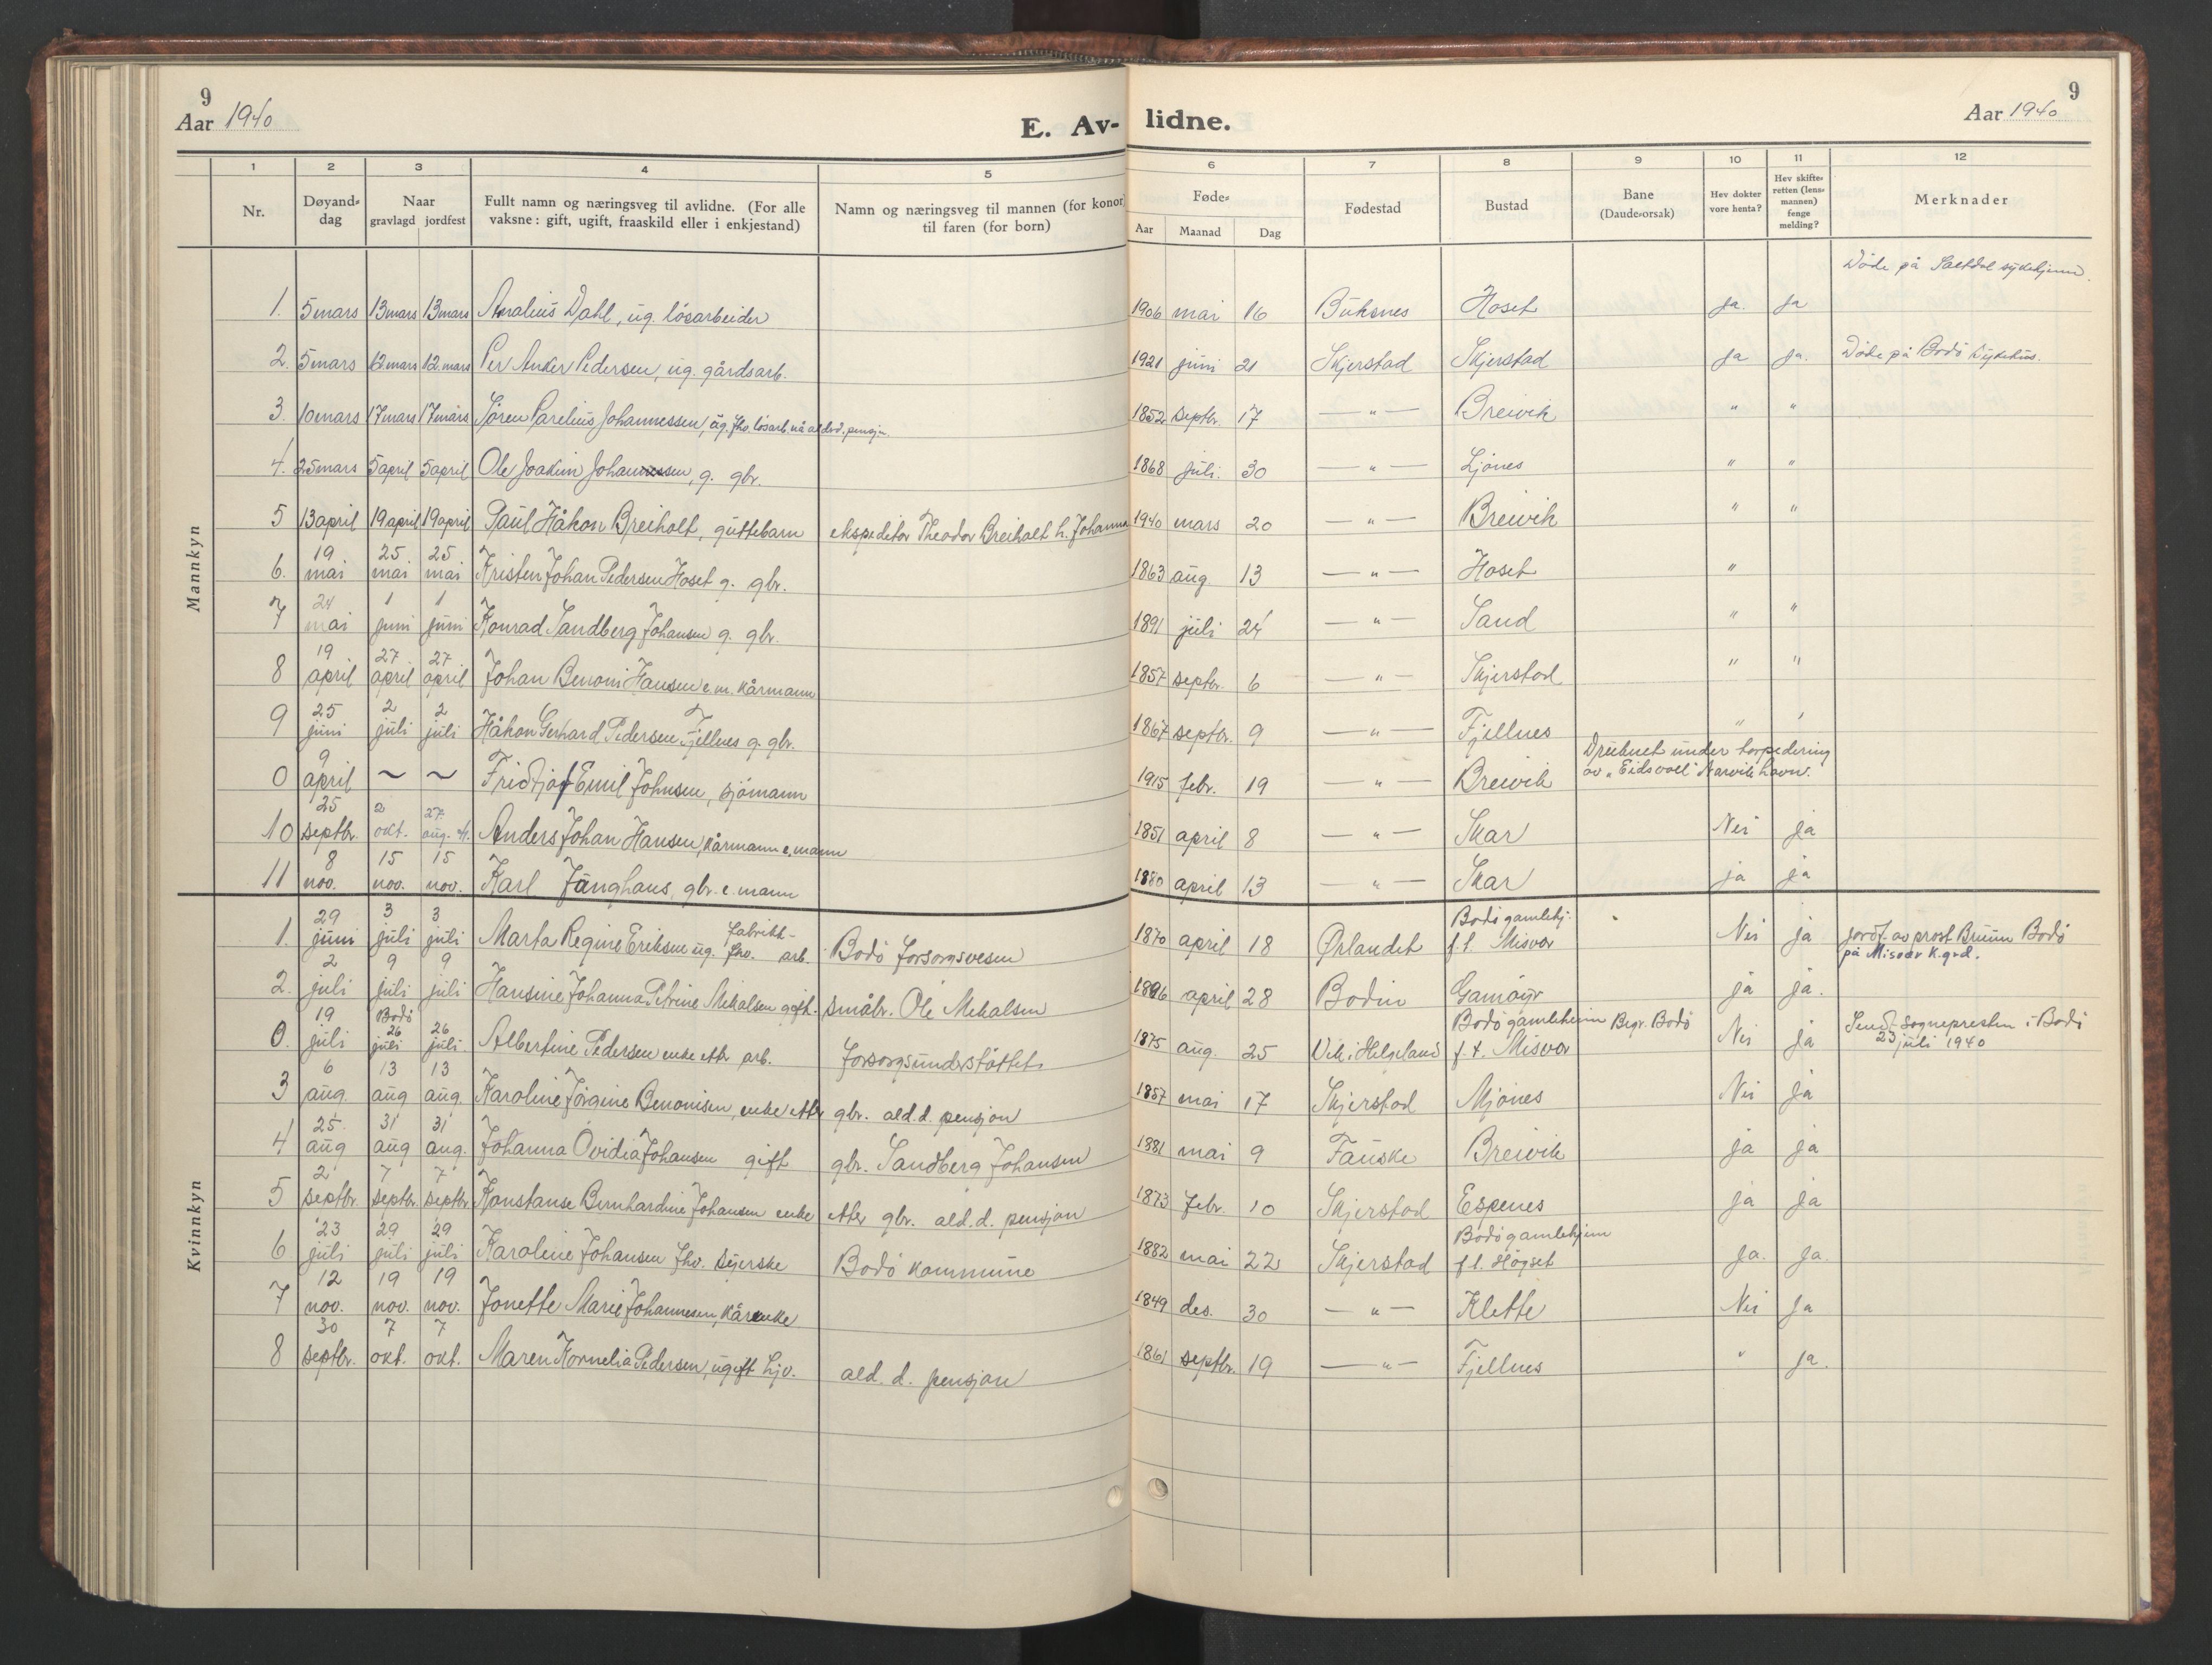 9
Aar 1940
E. Av-
lidne.
9
Aar 1940
1 2 3 4 5 6 7 8 9 10 11 12
Nr.
Døyand-
dag
Naar
gravlagd jordfest
Fullt namn og næringsveg til avlidne. (For alle
vaksne: gift, ugift, fraaskild eller i enkjestand)
Namn og næringsveg til mannen (for konor)
til faren (for born)
Føde-
Aar Maanad Dag
Fødestad
Bustad
Bane
(Daude-orsak)
Hev dokter
vore henta?
Hev skifte-
retten (lens-
mannen)
fenge
melding?
Merknader
Mannkyn
Døde på Saltdal sykehjem.
1. 5 mars 13 mars 13 mars Analius Dahl, ug. lösarbeider 1906 mai 16 Buksnes Hoset ja. ja
2. 5 mars 12 mars 12. mars Per Anker Pedersen, ug. gårdsarb. 1921 juni 21 Skjerstad Skjerstad ja ja. Døde på Bodö Sykehus.
3. 10 mars 17 mars 17 mars Sören Parelius Johannessen, ug. fhv. lösarb. nå alderd. pensjn. 1852 septbr. 17 — " — Breivik " "
4. 25 mars 5 april 5 april Ole Joakim Johannessen, g. gbr. 1868 juli. 30 — " — Ljönes " "
5 13 april 19 april 19 april Paul Håkon Breiholt, guttebarn ekspeditor Theodor Breiholt h. Johanna 1940 mars 20 — " — Breivik " "
6. 19 mai 25 mai 25 mai Kristen Johan Pedersen Hoset g. gbr. 1863 aug. 13 — " — Hoset "
7 24 mai 1 juni 1 juni Konrad Sandberg Johansen g. gbr. 1891 juli 24 — " — Sand " "
8 19 april 27 april 27 april Johan Benoni Hansen e.m. kårmann 1857 septbr. 6 — " — Skjerstad " "
9 25 juni 2 juli 2 juli Håkon Gerhard Pedersen Fjellnes g. gbr. 1867 septbr. 9 — " — Fjellnes " "
Druknet under torpedering
0 9 april ~ ~ Fridtjof Emil Johnsen, sjömann 1915 febr. 19 — " — Breivik av "Eidsvoll" Narvik havn.
10 25 septbr. 2 okt. 27. aug. Anders Johan Hansen, kårmann e. mann 1851 april 8 — " — Skar Nei ja
11 8 nov. 15 nov. 15 nov. Karl Junghans, gbr. e. mann 1880 april 13 — " — Skar ja ja
Kvinnkyn
1. 29 juni 3 juli 3 juli Marta Regine Eriksen ug. fhv. fabrikk- arb. Bodö forsorgsvesen 1870 april 18 Ørlandet Bodö gamlehj. f.t. Misvær Nei ja jordf. av prost Bruun Bodö
på Misvær k.grd.
2. 2 juli 9 juli 9 juli Hansine Johanna Petrine Mikalsen gift. småbr. Ole Mikalsen 1896 april 28 Bodin Gamöyr ja ja.
0. 19 juli Bodö 26 juli 26 juli. Albertine Pedersen enke ettr arb. forsorgsunderstöttet. 1875 aug. 25 Vik i Helgeland Bodö gamleheim f.t. Misvær Begr. Bodö Nei ja Send. Sognepresten i Bodö
23 juli 1940
3 6 aug. 13 aug 13 aug. Karoline Jörgine Benonisen, enke ettr gbr. ald.d. pensjon 1857 mai 17 Skjerstad Mjönes Nei ja
4 25. aug 31 aug 31 aug. Johanna Ovidia Johansen gift gbr. Sandberg Johansen 1881 mai 9 Fauske Breivik ja ja
5 2 septbr. 7 septbr. 7 septbr Konstanse Bernhardine Johansen enke ettr gbr. ald.d. pensjon 1873 febr. 10 Skjerstad Espenes ja ja
6 23 juli 29 juli 29 juli Karoline Johansen fhv. syerske Bodö kommune 1882 mai 22 Skjerstad Bodö gamlehjem f.t. Högset Ja. ja.
7 12 nov. 19 nov. 19 nov. Jonette Marie Johannesen, kårenke 1849 des. 30 — " — Klette Nei ja
8 30 septbr. 7 okt. 7 okt. Maren Kornelia Pedersen, ugift hjv. ald. d. pensjon 1861 septbr. 19 — " — Fjellnes " ja.